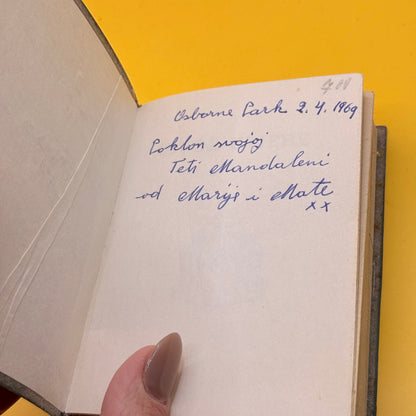 Osborne Park 2.4.1969
Poklon svojoj
Teti Mandaleni
od Marije i Mate
x x